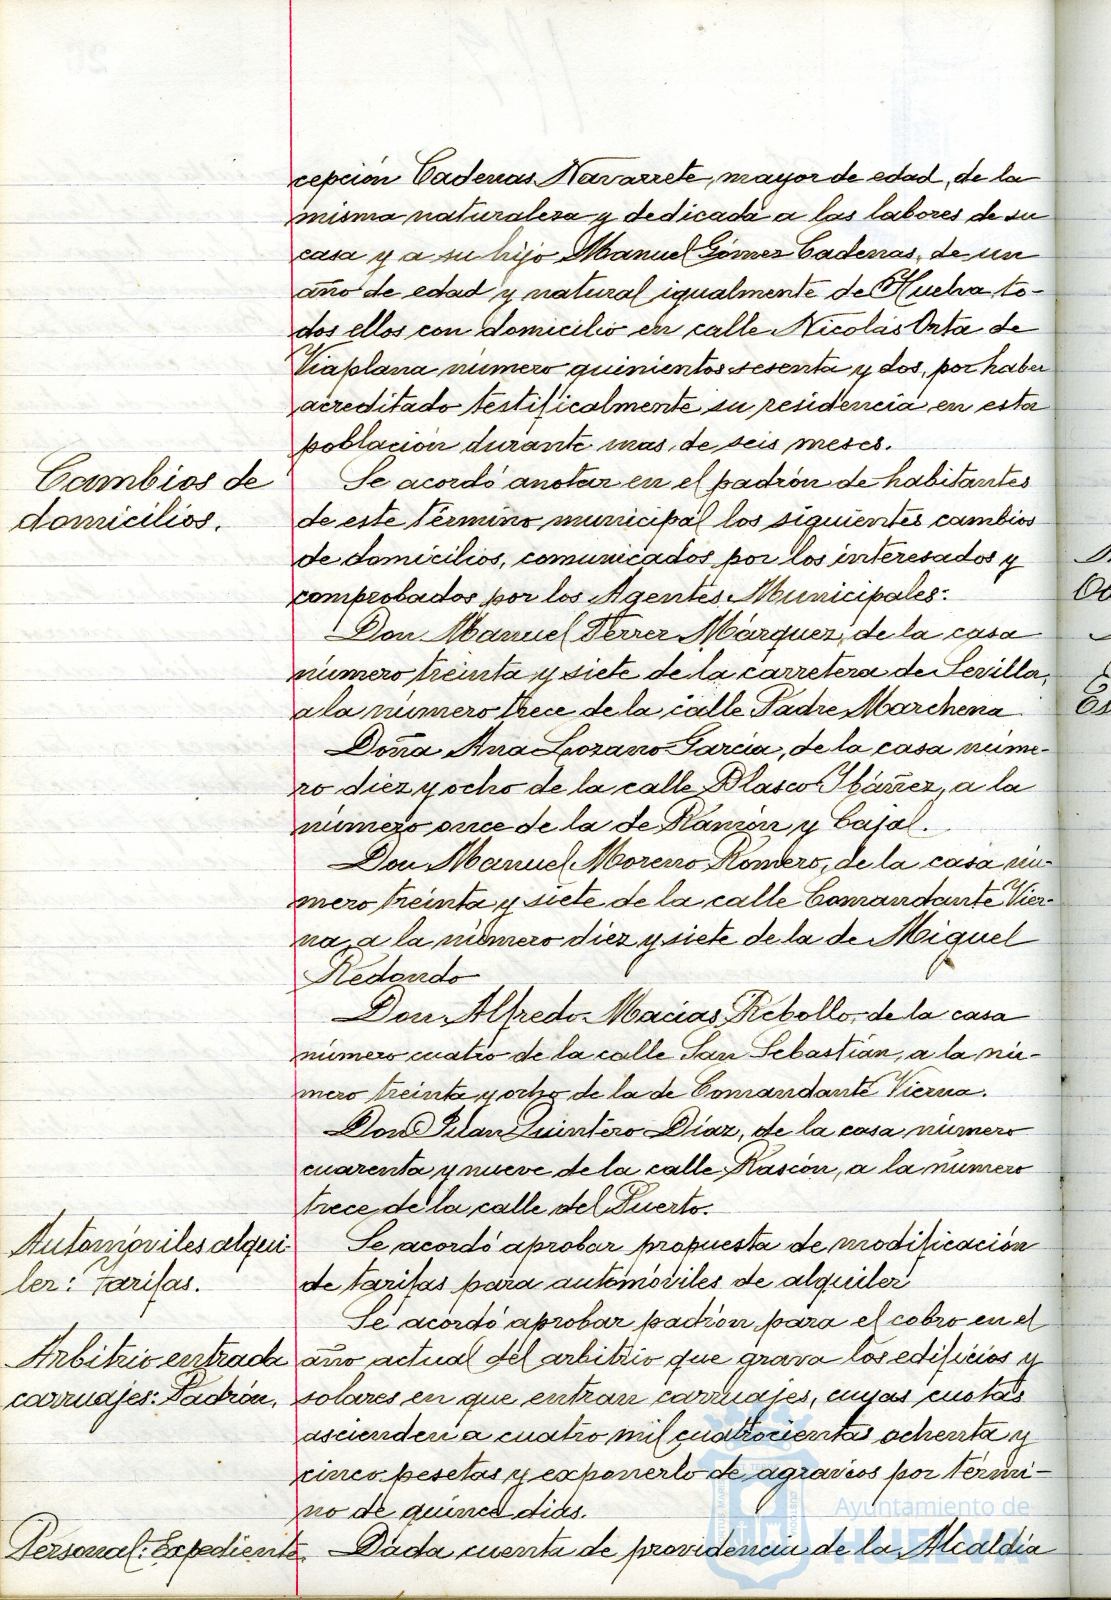 cepción Cadenas Navarrete, mayor de edad, de la
misma naturaleza y dedicada a las labores de su
casa y a su hijo Manuel Gómez Cadenas, de un
año de edad y natural igualmente de Huelva to-
dos ellos con domicilio en calle Nicolás Orta de
Viaplana número quinientos sesenta y dos, por haber
acreditado testificalmente su residencia en esta
población durante mas de seis meses.
Cambios de
domicilios.
Se acordó anotar en el padrón de habitantes
de este término municipal los siguientes cambios
de domicilios, comunicados por los interesados y
comprobados por los Agentes Municipales:
Don Manuel Ferrer Márquez, de la casa
número treinta y siete de la carretera de Sevilla,
a la número trece de la calle Padre Marchena
Doña Ana Lozano García, de la casa núme-
ro diez y ocho de la calle Blasco Ibáñez, a la
número once de la de Ramón y Cajal.
Don Manuel Moreno Romero, de la casa nú-
mero treinta y siete de la calle Comandante Vier-
na, a la número diez y siete de la de Miguel
Redondo
Don Alfredo Macías Rebollo, de la casa
número cuatro de la calle San Sebastián, a la nú-
mero treinta y ocho de la de Comandante Vierna.
Don Juan Quintero Díaz, de la casa número
cuarenta y nueve de la calle Rascón, a la número
trece de la calle del Puerto.
Automóviles alqui-
ler: Tarifas.
Se acordó aprobar propuesta de modificación
de tarifas para automóviles de alquiler
Arbitrio entrada
carruajes: Padrón.
Se acordó aprobar padrón para el cobro en el
año actual del arbitrio que grava los edificios y
solares en que entran carruajes, cuyas cuotas
ascienden a cuatro mil cuatrocientas ochenta y
cinco pesetas y exponerlo de agravios por térmi-
no de quince dias.
Personal: Expediente
Dada cuenta de providencia de la Alcaldía
Ayuntamiento de
HUELVA